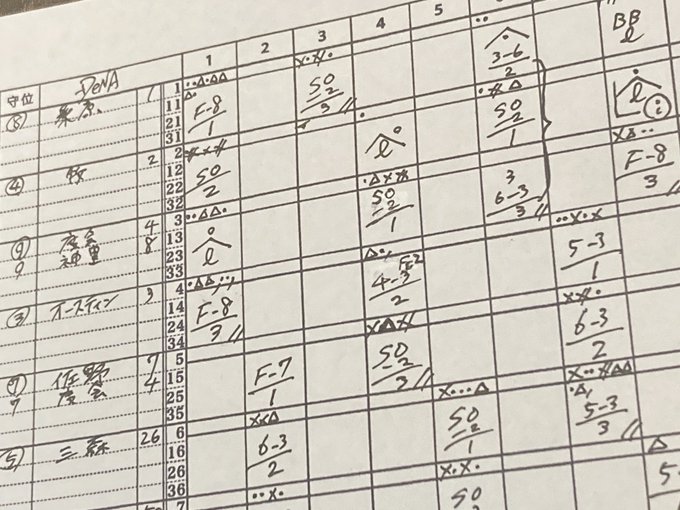 1 2 3 4 5 BB
守位 DeNA 3-6 l
2
⑧ 桑原 1 1 SO l
11 F-8 2 SO
21 1 3 1
31
④ 牧 2 2 l F-8
12 SO 3
22 2 SO 3
32 2 6-3
⑨ 度会 4 3 1 3
9 神里 8 13 5-3
23 l 1
33 4-3
③ オースティン 3 4 2
14 F-8 6-3
24 3 2
34 SO
⑦ 佐野 7 5 2
7 度会 4 15 F-7 3 5-3
25 1 SO 3
35 2
⑤ 三森 26 6 1
16 6-3
26 2
36 SO 5-
7